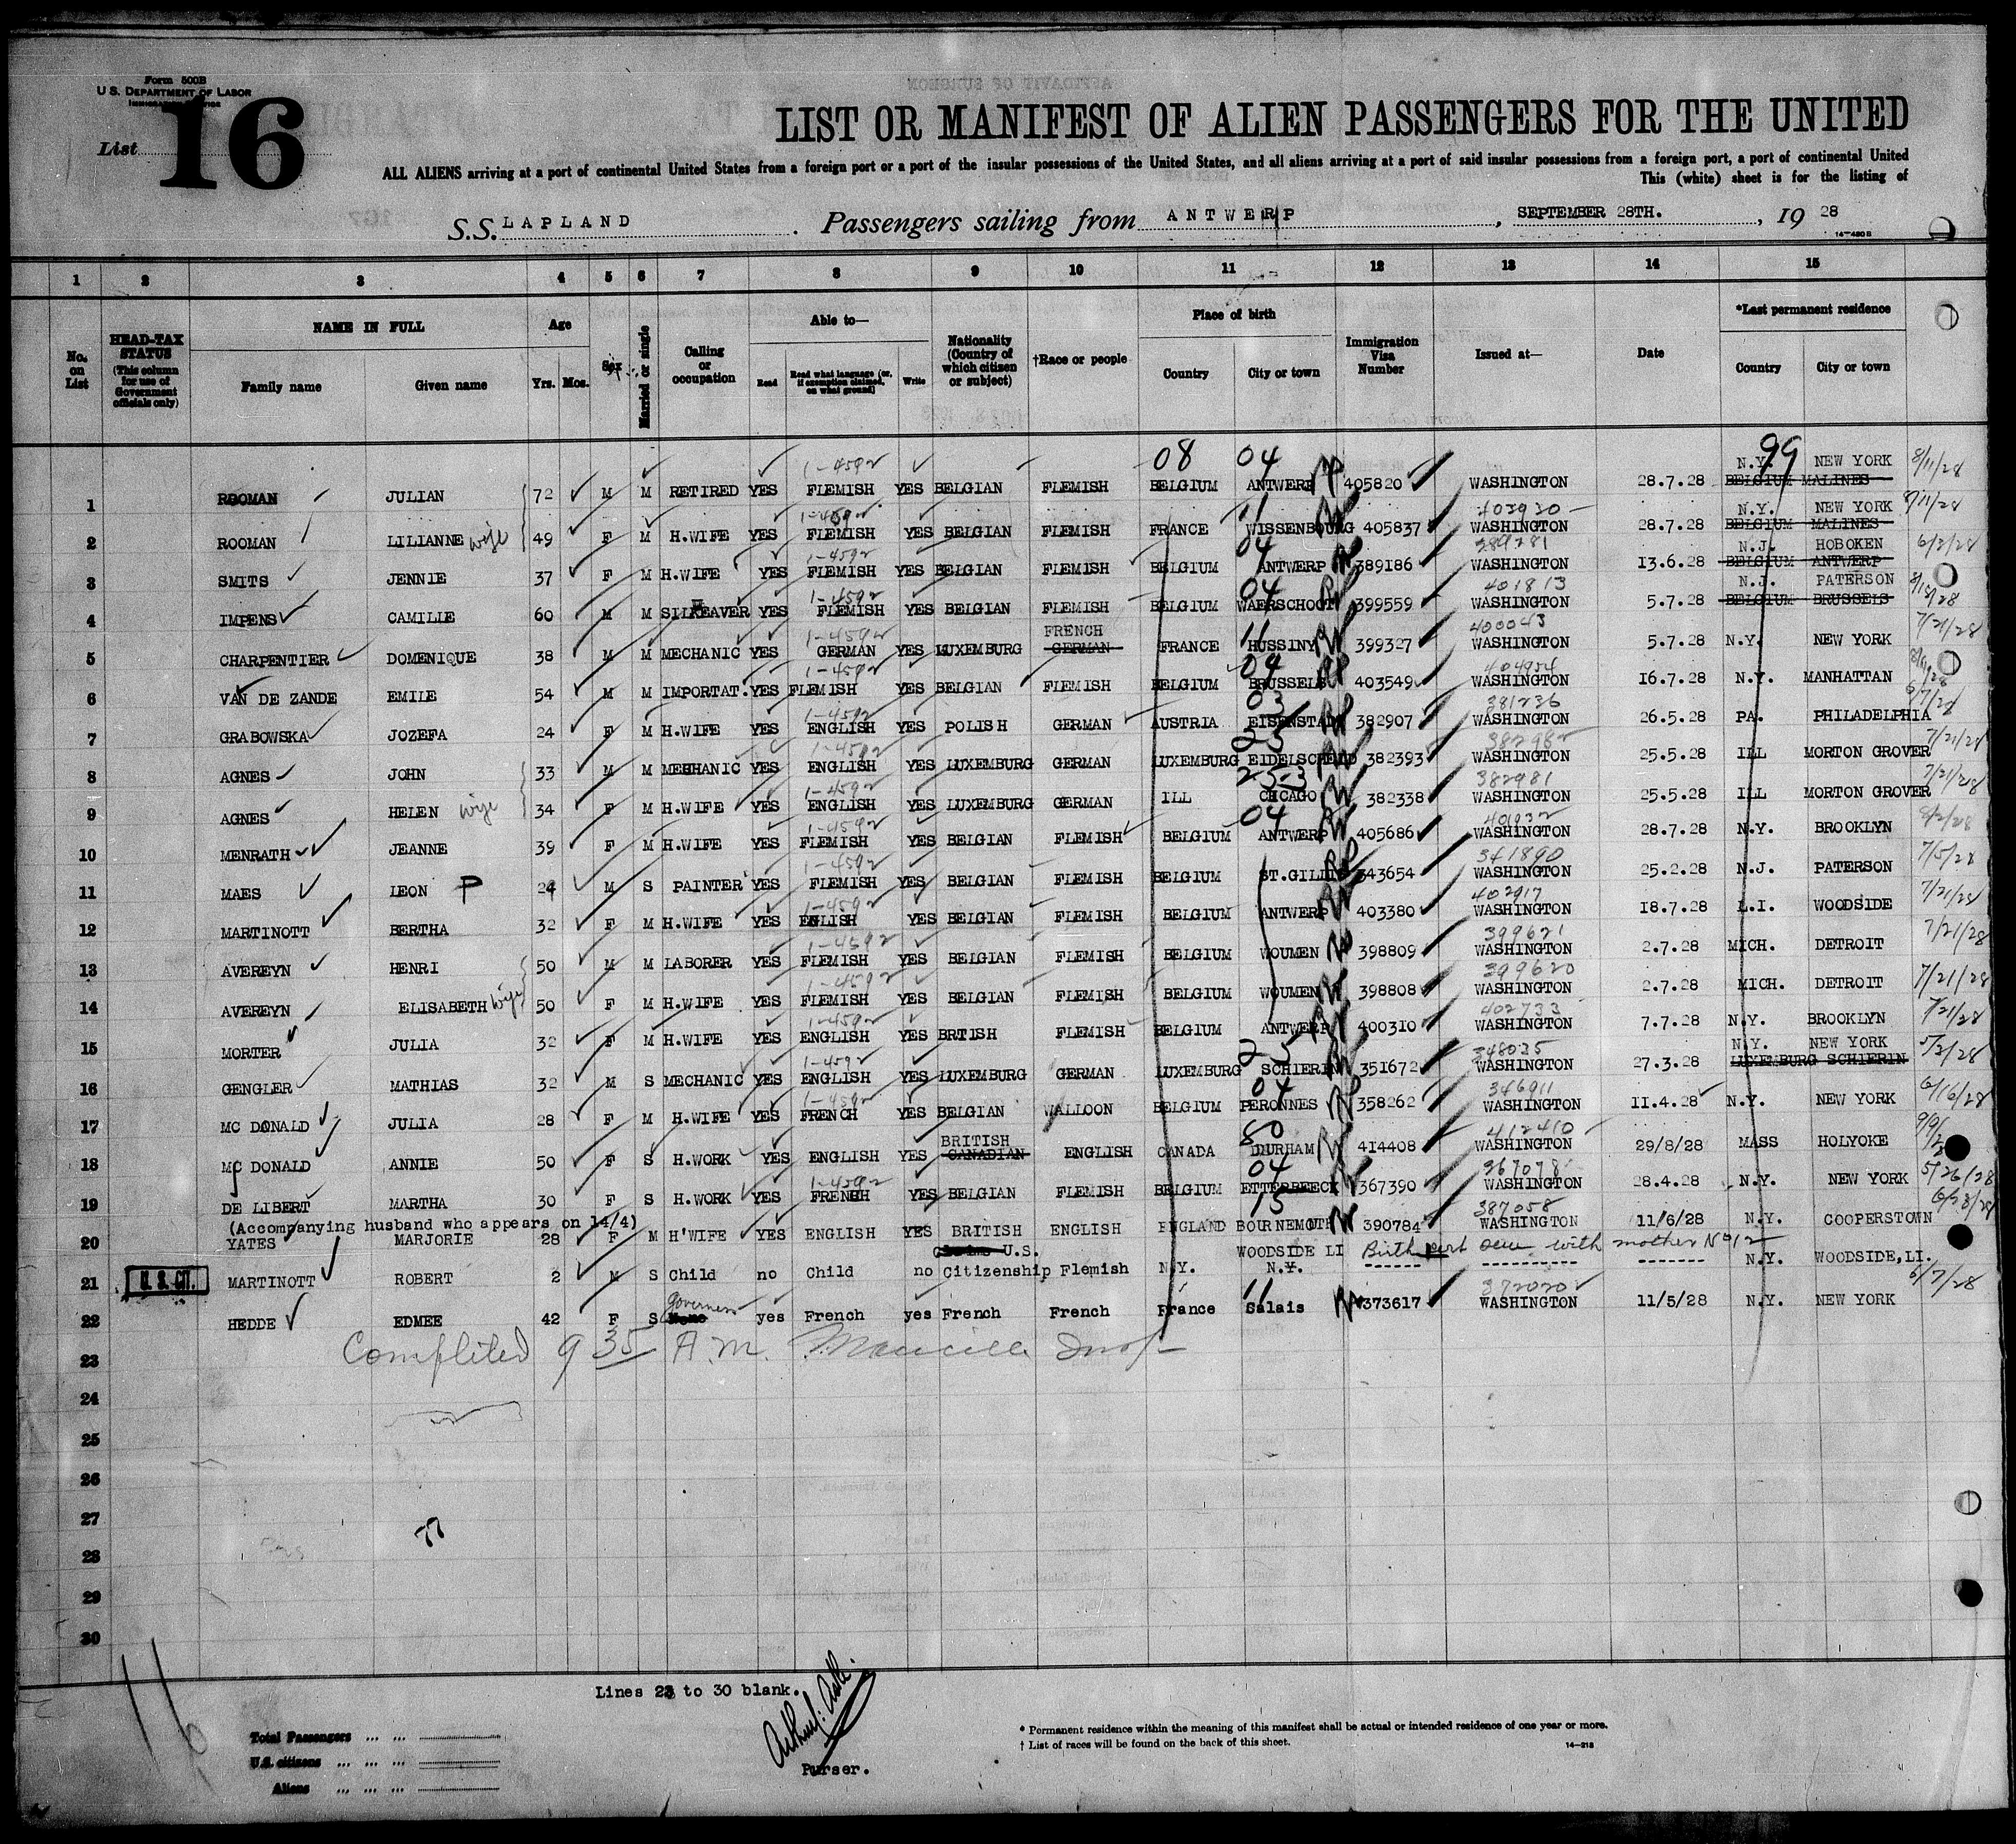 Form 500B
U. S. DEPARTMENT OF LABOR
List 16
LIST OR MANIFEST OF ALIEN PASSENGERS FOR THE UNITED
ALL ALIENS arriving at a port of continental United States from a foreign port or a port of the insular possessions of the United States, and all aliens arriving at a port of said insular possessions from a foreign port, a port of continental United
This (white) sheet is for the listing of
S.S. LAPLAND . Passengers sailing from ANTWERP , SEPTEMBER 28TH. , 19 28
14-480 B
1 2 3 4 5 6 7 8 9 10 11 12 13 14 15
No. on List
HEAD-TAX STATUS (This column for use of Government officials only)
NAME IN FULL
Family name Given name
Age
Yrs. Mos.
Sex
Married or single
Calling or occupation
Able to—
Read Read what language (or, if exemption claimed, on what ground) Write
Nationality (Country of which citizen or subject)
†Race or people
Place of birth
Country City or town
Immigration Visa Number
Issued at—
Date
*Last permanent residence
Country City or town
08 04 99
1-4592 N.Y. NEW YORK 8/11/28
1 ROOMAN JULIAN 72 M M RETIRED YES FLEMISH YES BELGIAN FLEMISH BELGIUM ANTWERP 405820 WASHINGTON 28.7.28 BELGIUM MALINES
1-4592 11 402930 N.Y. NEW YORK 8/11/28
2 ROOMAN LILIANNE wife 49 F M H.WIFE YES FLEMISH YES BELGIAN FLEMISH FRANCE WISSENBOURG 405837 WASHINGTON 28.7.28 BELGIUM MALINES
1-4592 04 389281 N.J. HOBOKEN 6/2/28
3 SMITS JENNIE 37 F M H.WIFE YES FLEMISH YES BELGIAN FLEMISH BELGIUM ANTWERP 389186 WASHINGTON 13.6.28 BELGIUM ANTWERP
1-4592 04 401813 N.J. PATERSON 8/15/28
4 IMPENS CAMILLE 60 M M SILKEAVER YES FLEMISH YES BELGIAN FLEMISH BELGIUM WAERSCHOOT 399559 WASHINGTON 5.7.28 BELGIUM BRUSSELS
1-4592 FRENCH 11 400043 7/21/28
5 CHARPENTIER DOMENIQUE 38 M M MECHANIC YES GERMAN YES LUXEMBURG GERMAN FRANCE HUSSINY 399327 WASHINGTON 5.7.28 N.Y. NEW YORK
1-4592 04 404954
6 VAN DE ZANDE EMILE 54 M M IMPORTAT. YES FLEMISH YES BELGIAN FLEMISH BELGIUM BRUSSELS 403549 WASHINGTON 16.7.28 N.Y. MANHATTAN
1-4592 03 381236 6/7/28
7 GRABOWSKA JOZEFA 24 F M H.WIFE YES ENGLISH YES POLISH GERMAN AUSTRIA EISENSTADT 382907 WASHINGTON 26.5.28 PA. PHILADELPHIA
1-4592 25 382982 7/21/28
8 AGNES JOHN 33 M M MECHANIC YES ENGLISH YES LUXEMBURG GERMAN LUXEMBURG EIDELSCHEID 382393 WASHINGTON 25.5.28 ILL MORTON GROVER
1-4592 25-3 382981 7/21/28
9 AGNES HELEN wife 34 F M H.WIFE YES ENGLISH YES LUXEMBURG GERMAN ILL CHICAGO 382338 WASHINGTON 25.5.28 ILL MORTON GROVER
1-4592 04 401932 8/2/28
10 MENRATH JEANNE 39 F M H.WIFE YES FLEMISH YES BELGIAN FLEMISH BELGIUM ANTWERP 405686 WASHINGTON 28.7.28 N.Y. BROOKLYN
1-4592 341890 7/5/28
11 MAES LEON P 24 M S PAINTER YES FLEMISH YES BELGIAN FLEMISH BELGIUM ST.GILLIS 343654 WASHINGTON 25.2.28 N.J. PATERSON
1-4592 402917 7/21/28
12 MARTINOTT BERTHA 32 F M H.WIFE YES ENLISH YES BELGIAN FLEMISH BELGIUM ANTWERP 403380 WASHINGTON 18.7.28 L.I. WOODSIDE
1-4592 399621 7/21/28
13 AVEREYN HENRI 50 M M LABORER YES FLEMISH YES BELGIAN FLEMISH BELGIUM WOUMEN 398809 WASHINGTON 2.7.28 MICH. DETROIT
1-4592 399620 7/21/28
14 AVEREYN ELISABETH wife 50 F M H.WIFE YES FLEMISH YES BELGIAN FLEMISH BELGIUM WOUMEN 398808 WASHINGTON 2.7.28 MICH. DETROIT
1-4592 402733 7/21/28
15 MORTER JULIA 32 F M H.WIFE YES ENGLISH YES BRTISH FLEMISH BELGIUM ANTWERP 400310 WASHINGTON 7.7.28 N.Y. BROOKLYN
1-4592 25 348025 N.Y. NEW YORK 5/2/28
16 GENGLER MATHIAS 32 M S MECHANIC YES ENGLISH YES LUXEMBURG GERMAN LUXEMBURG SCHIERIN 351672 WASHINGTON 27.3.28 LUXEMBURG SCHIERIN
1-4592 04 346911 6/16/28
17 MC DONALD JULIA 28 F M H.WIFE YES FRENCH YES BELGIAN WALLOON BELGIUM PERONNES 358262 WASHINGTON 11.4.28 N.Y. NEW YORK
BRITISH 80 412410
18 MC DONALD ANNIE 50 F S H.WORK YES ENGLISH YES CANADIAN ENGLISH CANADA DHURHAM 414408 WASHINGTON 29/8/28 MASS HOLYOKE
1-4592 04 367078 5/26/28
19 DE LIBERT MARTHA 30 F S H.WORK YES FRENHH YES BELGIAN FLEMISH BELGIUM ETTERBEECK 367390 WASHINGTON 28.4.28 N.Y. NEW YORK
(Accompanying husband who appears on 14/4) 15 387058 6/23/28
20 YATES MARJORIE 28 F M H'WIFE YES ENGLISH YES BRITISH ENGLISH ENGLAND BOURNEMOTH 390784 WASHINGTON 11/6/28 N.Y. COOPERSTOWN
Claims U.S. WOODSIDE LI Birth cert seen with mother No 12
21 U. S. CIT. MARTINOTT ROBERT 2 M S Child no Child no Citizenship Flemish N.Y. N.Y. ------ ----------- ------- N.Y. WOODSIDE, LI.
governess 11 372020 6/7/28
22 HEDDE EDMEE 42 F S None yes French yes French French France Calais 373617 WASHINGTON 11/5/28 N.Y. NEW YORK
23 Completed 9 35 A.M.
24
25
26
27
28
29
30
16
Lines 23 to 30 blank.
Total Passengers ... ...
U.S. citizens ... ... ...
Aliens ... ... ...
Purser.
* Permanent residence within the meaning of this manifest shall be actual or intended residence of one year or more.
† List of races will be found on the back of this sheet.
14-218